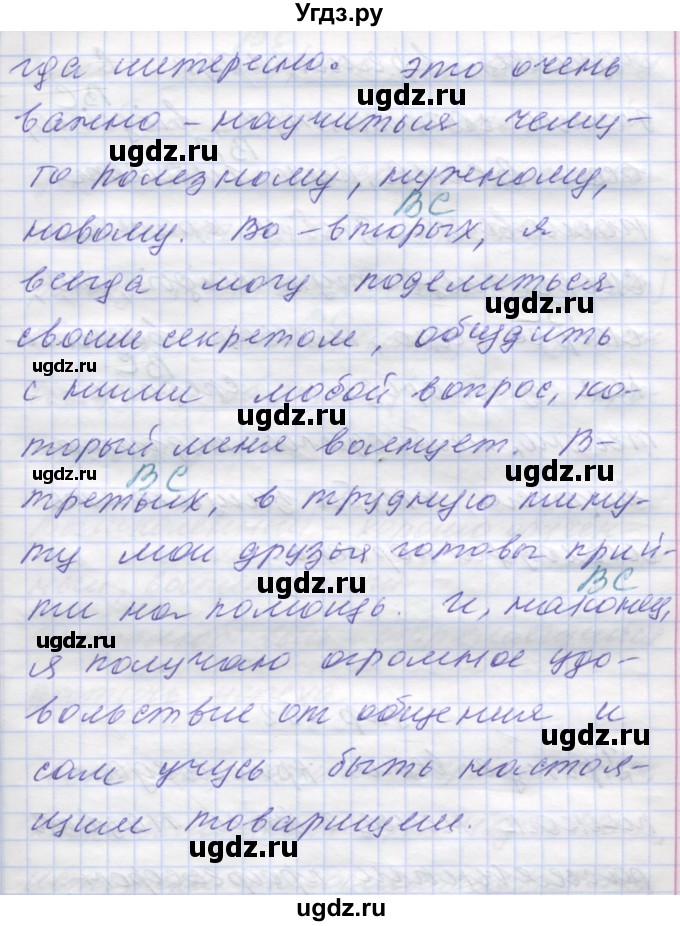 Угдз.ру
гда интересно. Это очень
ugdz.ru
важно - научиться чему-
ugdz.ru
то полезному, нужному,
ВС
новому. Во-вторых, я
всегда могу поделиться
ugdz.ru
своим секретом, обсудить
ugdz.ru
с ними любой вопрос, ко-
ugdz.ru
торый меня волнует. В-
ugdz.ru ВС ugdz.ru
третьих, в трудную мину-
ту мои друзья готовы прий-
ugdz.ru ВС
ти на помощь. И, наконец,
ugdz.ru
я получаю огромное удо-
вольствие от общения и
ugdz.ru
сам учусь быть настоя-
щим товарищем.
ugdz.ru
ugdz.ru